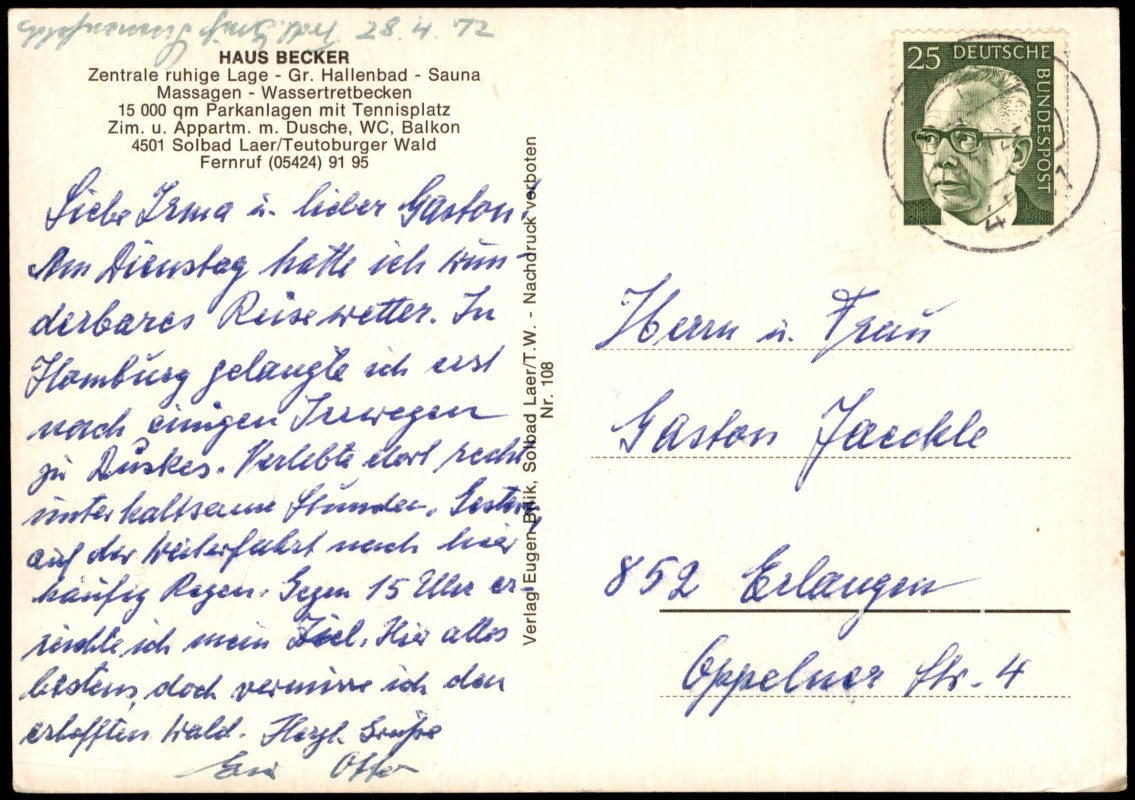 28.4.72
HAUS BECKER
Zentrale ruhige Lage - Gr. Hallenbad - Sauna
Massagen - Wassertretbecken
15 000 qm Parkanlagen mit Tennisplatz
Zim. u. Appartm. m. Dusche, WC, Balkon
4501 Solbad Laer/Teutoburger Wald
Fernruf (05424) 91 95
Liebe Irma u. lieber Gaston.
Am Dienstag hatte ich wun-
derbares Reisewetter. In
Homburg gelangte ich erst
nach einigen Irrwegen
zu Duskes. Verlebte dort recht
unterhaltsame Stunden. Gestern
auf der Weiterfahrt nach hier
häufig Regen. Gegen 15 Uhr er-
reichte ich mein Ziel. Hier alles
bestens, doch vermisse ich den
erhofften Wald. Herzl. Grüße
Otto
Verlag Eugen Bilik, Solbad Laer/T.W. - Nachdruck verboten
Nr. 108
25 DEUTSCHE
BUNDESPOST
Herrn u. Frau
Gaston Jaeckle
852 Erlangen
Oppelner Str. 4